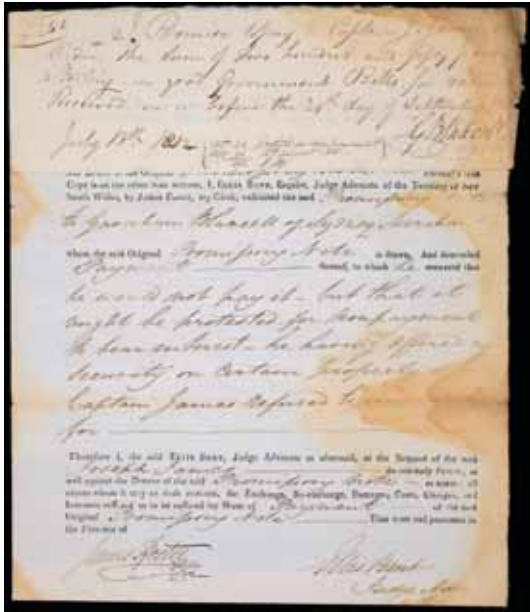 I Promise to pay Captn
the sum of two hundred and fifty
Sterling in good Government Bills for value
Received on or before the 24th day of September
July 18th 1812
G Blaxcell
Copy is on the other side written, I, ELLIS BENT, Esquire, Judge Advocate of the Territory of New
South Wales, by James Foster, my Clerk, exhibited the said Promissory
to Garnham Blaxcell of Sydney
whom the said Original Promissory Note is drawn, And demanded
Payment thereof, to which he answered that
he would not pay it - but that it
might be protested for nonpayment
to bear interest - he having offered
security on certain Property
Captain James refused to
for
Therefore I, the said ELLIS BENT, Judge Advocate as aforesaid, at the Request of the said
Joseph James do solemnly Protest, as
well against the Drawer of the said Promissory Note as against all
others whom it may or doth concern, for Exchange, Re-exchange, Damages, Costs, Charges, and
Interests suffered or to be suffered for Want of Payment of the said
Original Promissory Note Thus done and protested in
the Presence of
Ellis Bent
Judge Adv